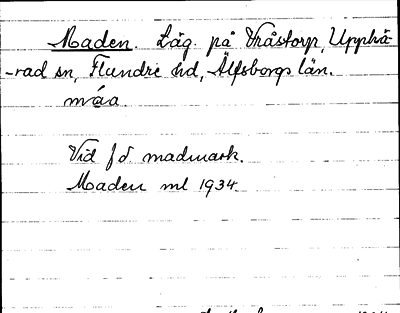 Maden. Läg. på Vråstorp, Upphä-
-rad sn, Flundre hd, Älfsborgs län.
Vid f d madmark.
Maden ml 1934